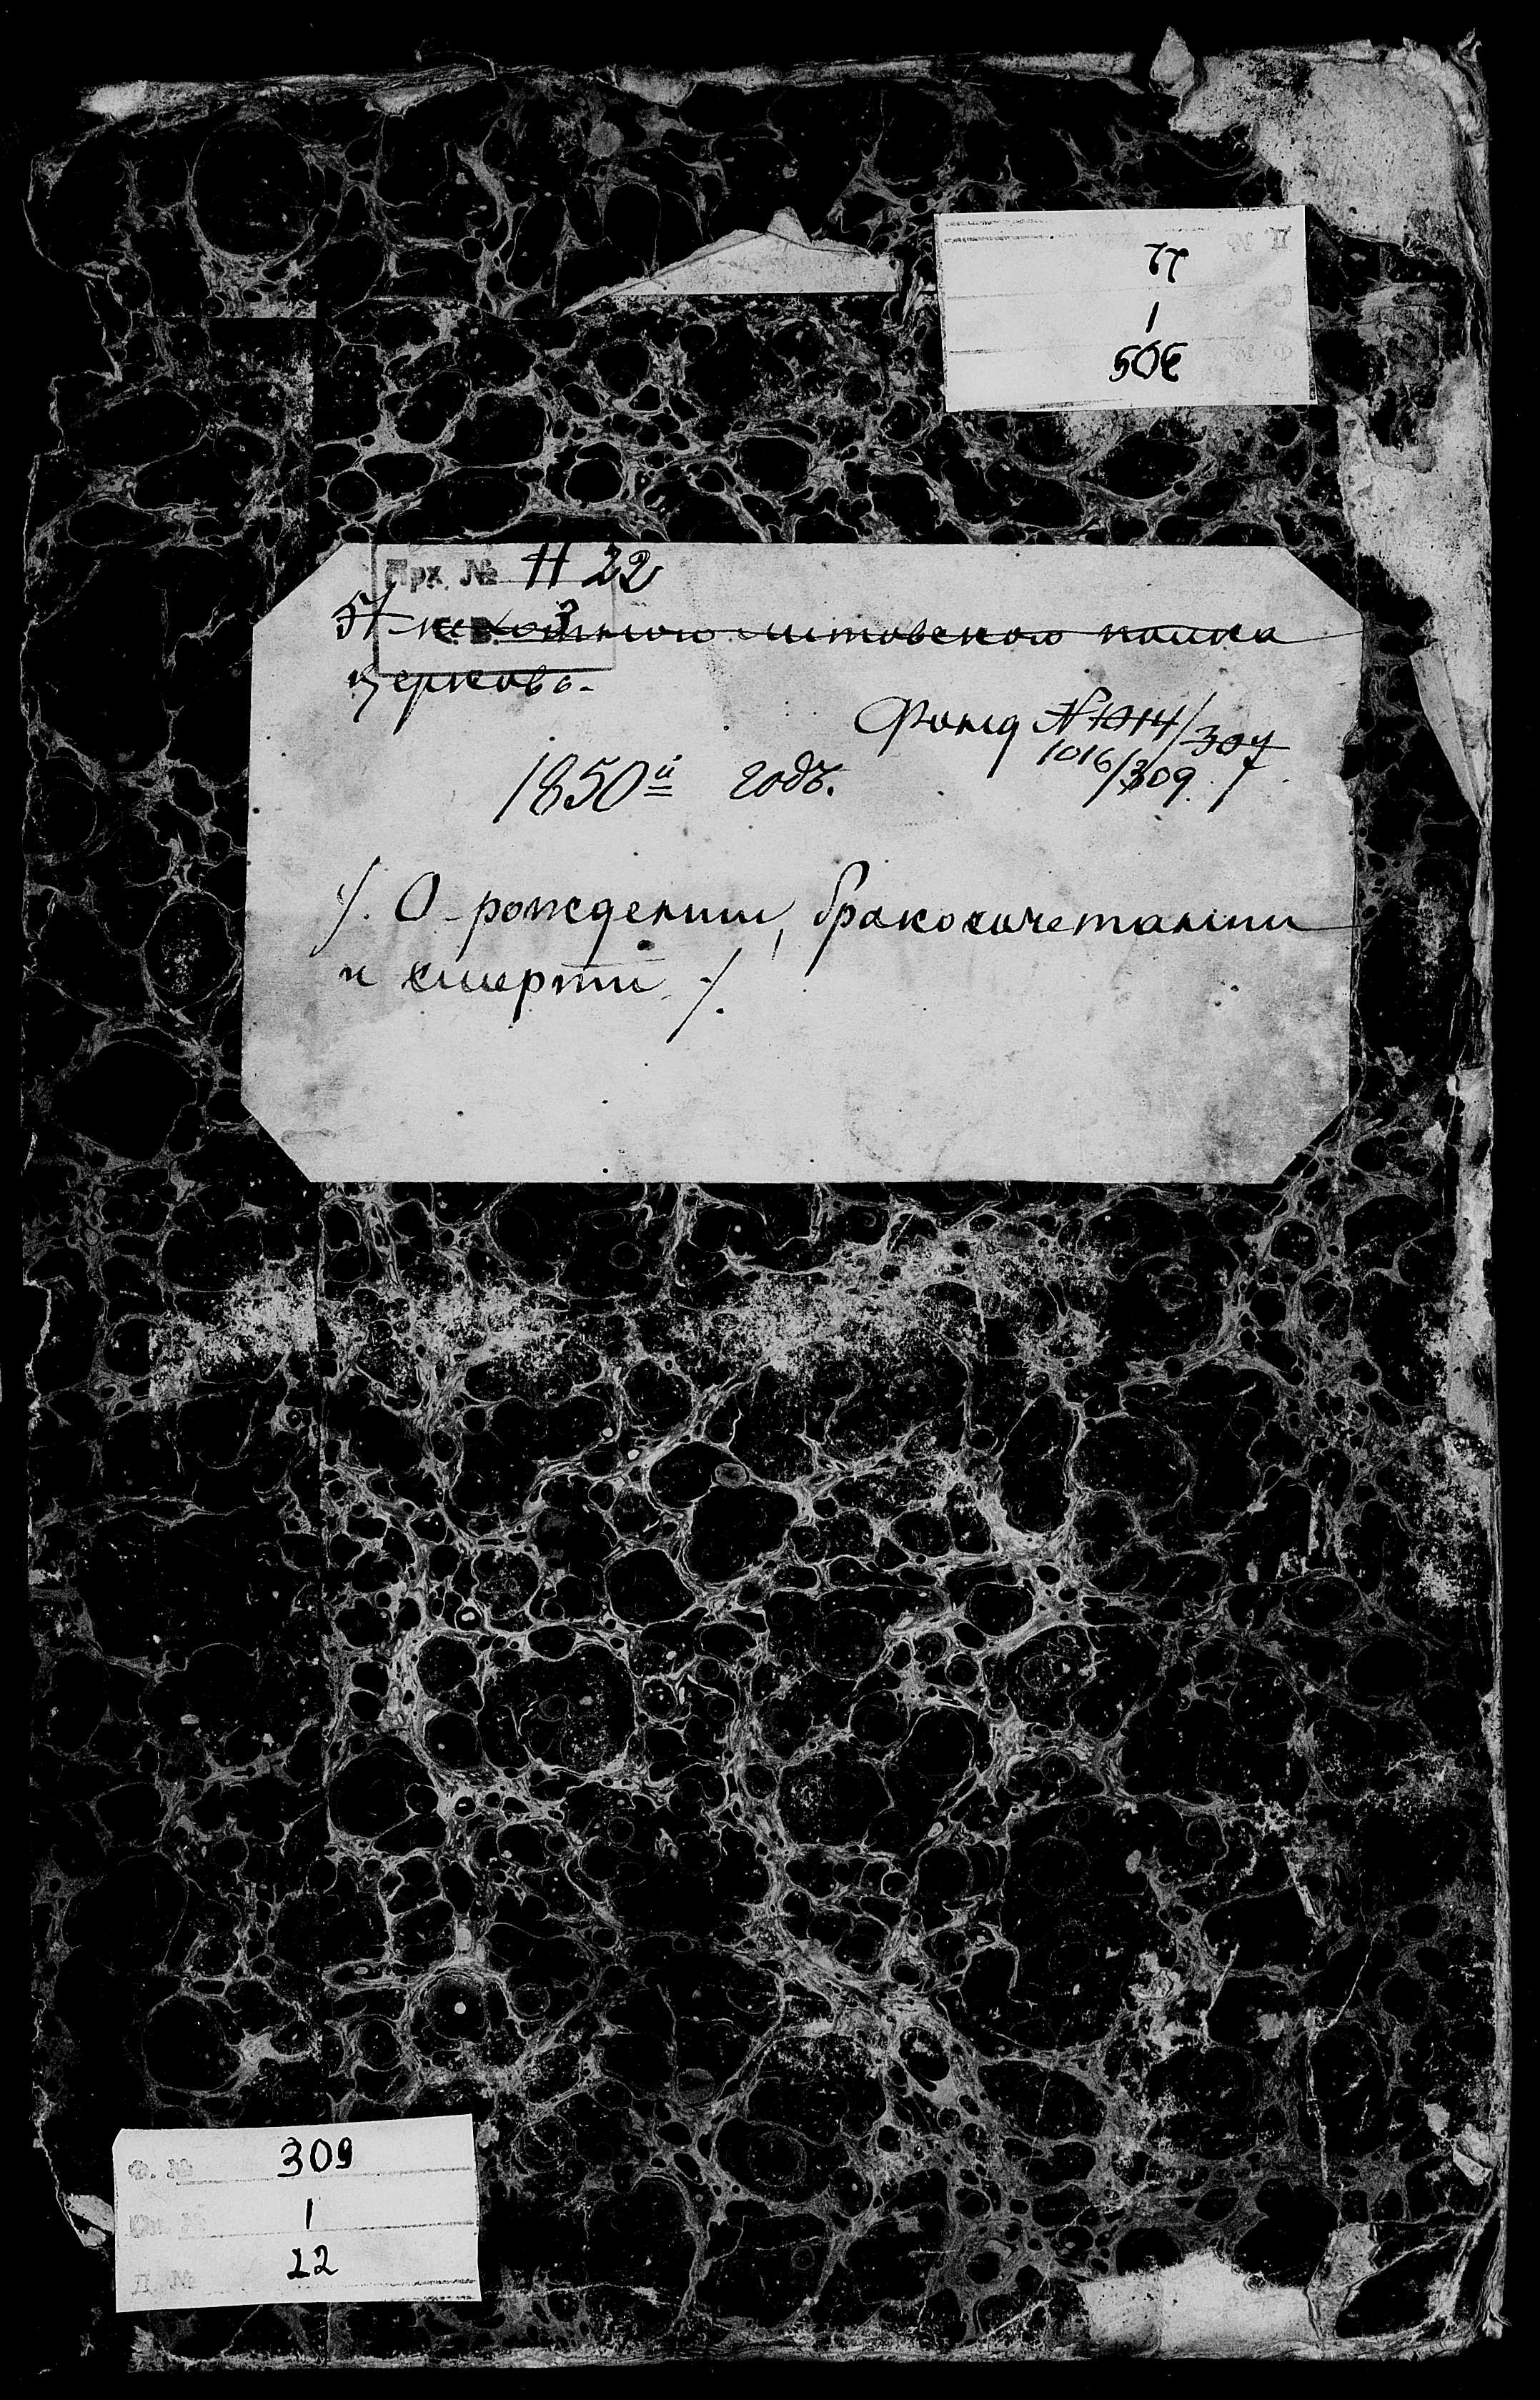 Арх. № 11 22
51 пехотного литовского полка
церковь.
Фонд № 1014/307
1016/309.
1850й годъ.
/. О рождении, бракосочетании
и смерти /.
Ф. № 309
Оп. № 1
Д. № 22